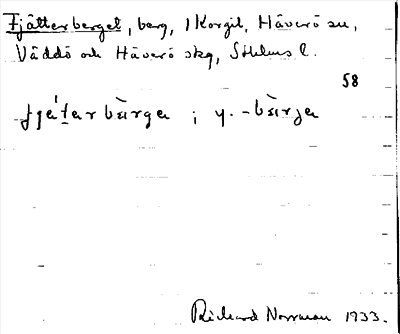 Fjätterberget, berg, 1 Korgil, Häverö sn,
Väddö och Häverö skg, Sthlms l.
58
fjätarbärga ; y. -bärja
Rickard Norrman 1933.